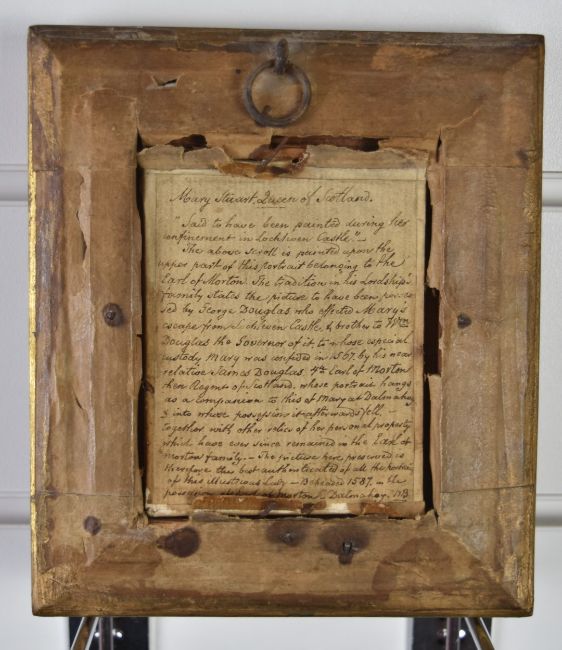 Mary Stuart, Queen of Scotland.
"Said to have been painted during her
confinement in Lochleven Castle." —
The above Scroll is painted upon the
upper part of this portrait belonging to the
Earl of Morton. The tradition in his Lordship's
family states the picture to have been
by George Douglas, who effected Mary's
escape from Lochleven Castle, & brother to Wm
Douglas the Governor of it, to whose especial
custody Mary was confided in 1567, by his near
relative James Douglas 4th Earl of Morton
then Regent of Scotland, whose portrait hangs
as a companion to this of Mary at Dalmahoy
& into whose possession it afterwards fell —
together with other relics of her personal property
which have ever since remained in the Earl of
Morton family. — The picture here presented is
therefore the best authenticated of all the portraits
of this Illustrious Lady — Beheaded 1587. in the
possession of Morton, Dalmahoy.